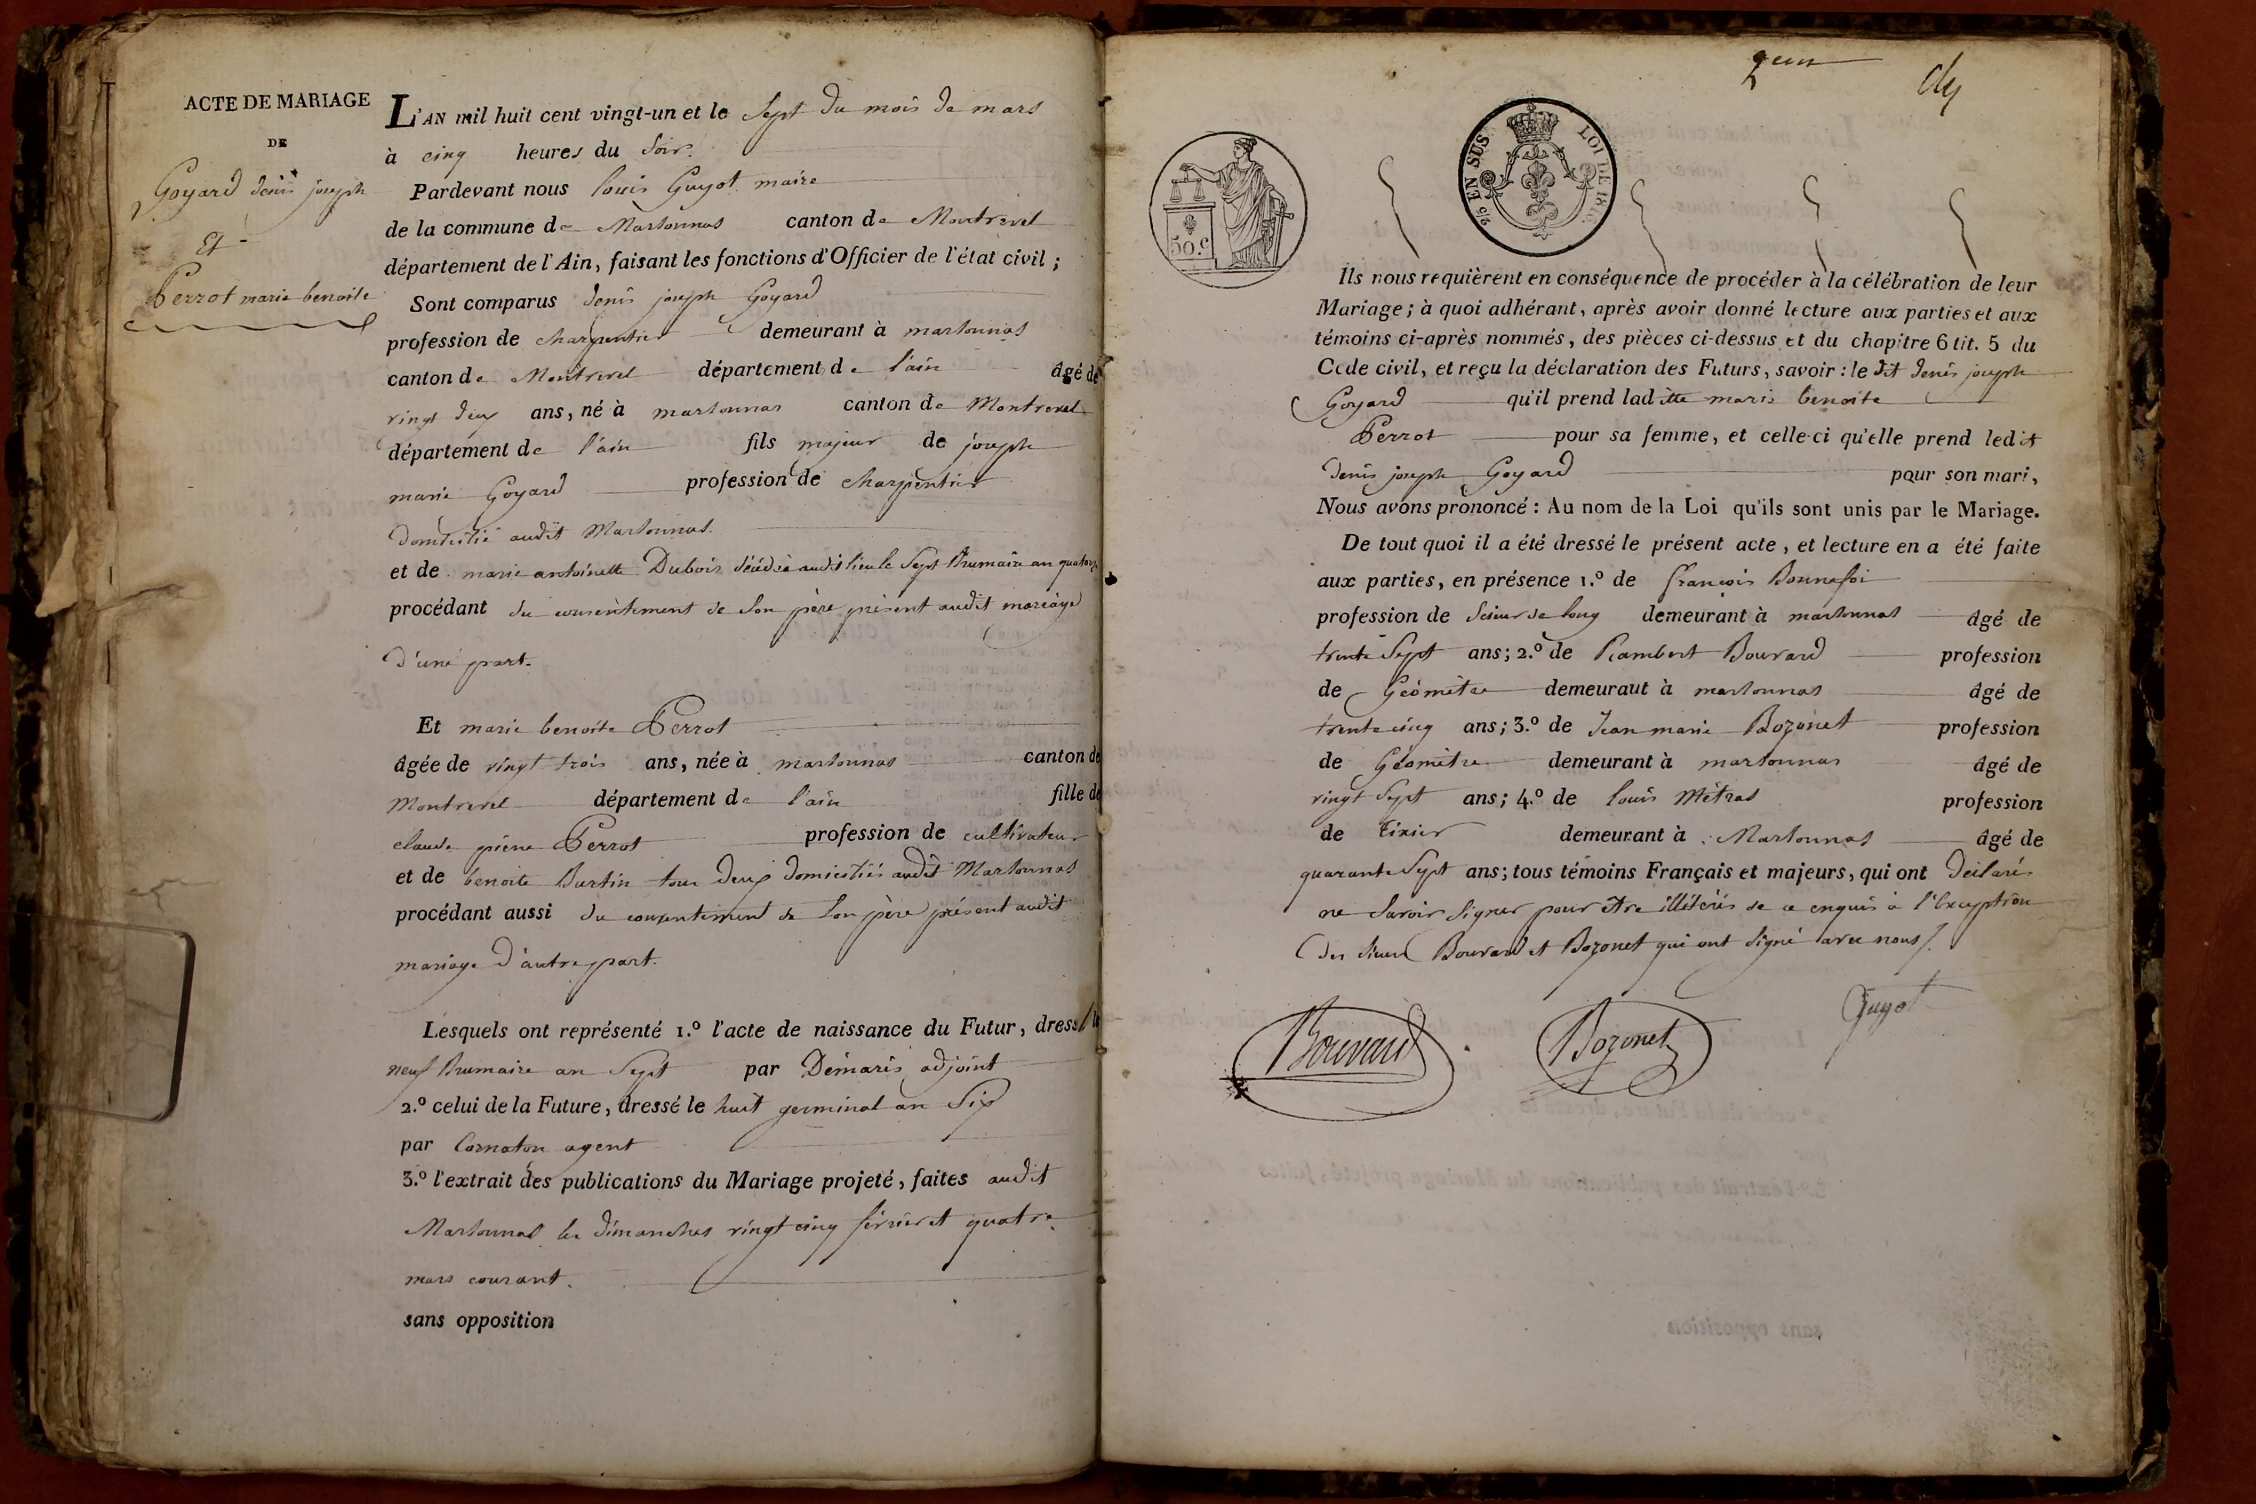 ACTE DE MARIAGE
DE
Goyard denis joseph
Et
Perrot marie benoite
L'AN mil huit cent vingt-un et le Sept du mois de mars
à cinq heures du Soir.
Pardevant nous louis Guyot maire
de la commune de Marsonnas canton de Montrevel
département de l'Ain, faisant les fonctions d'Officier de l'état civil;
Sont comparus denis joseph Goyard
profession de charpentier demeurant à marsonnas
canton de Montrevel département de l'ain âgé de
vingt deux ans, né à marsonnas canton de Montrevel
département de l'ain fils majeur de joseph
marie Goyard profession de charpentier
domicilié audit Marsonnas.
et de marie antoinette Dubois décédée audit lieu le Sept Brumaire an quatorze
procédant du consentement de Son père présent audit mariage
d'une part.
Et marie benoite Perrot
âgée de vingt trois ans, née à marsonnas canton de
Montrevel département de l'ain fille de
claude pierre Perrot profession de cultivateur
et de benoite Burtin tous deux domiciliés audit Marsonnas
procédant aussi du consentement de Son père présent audit
mariage d'autre part.
Lesquels ont représenté 1.º l'acte de naissance du Futur, dressé le
neuf Brumaire an Sept par Démaris adjoint
2.º celui de la Future, dressé le huit germinal an Six
par Cornaton agent
3.º l'extrait des publications du Mariage projeté, faites audit
Marsonnas les dimanches vingt cinq février et quatre
mars courant.
sans opposition
2/5 EN SUS LOI DE 1816
50.c
Ils nous requièrent en conséquence de procéder à la célébration de leur
Mariage; à quoi adhérant, après avoir donné lecture aux parties et aux
témoins ci-après nommés, des pièces ci-dessus et du chapitre 6 tit. 5 du
Code civil, et reçu la déclaration des Futurs, savoir: le dit denis joseph
Goyard qu'il prend laditte marie benoite
Perrot pour sa femme, et celle-ci qu'elle prend ledit
denis joseph Goyard pour son mari,
Nous avons prononcé: Au nom de la Loi qu'ils sont unis par le Mariage.
De tout quoi il a été dressé le présent acte, et lecture en a été faite
aux parties, en présence 1.º de françois Bonnefoi
profession de Scieur de long demeurant à marsonnas âgé de
trente Sept ans; 2.º de Rambert Bouvard profession
de Géomètre demeuraut à marsonnas âgé de
trente cinq ans; 3.º de Jean marie Bozonet profession
de Géomètre demeurant à marsonnas âgé de
vingt Sept ans; 4.º de louis Métras profession
de Tixier demeurant à Marsonnas âgé de
quarante Sept ans; tous témoins Français et majeurs, qui ont déclaré
ne Savoir Signer pour être illétérés de ce enquis à l'Exception
des Sieurs Bouvard et Bozonet qui ont Signé avec nous.
Bouvard
Bozonet
Guyot